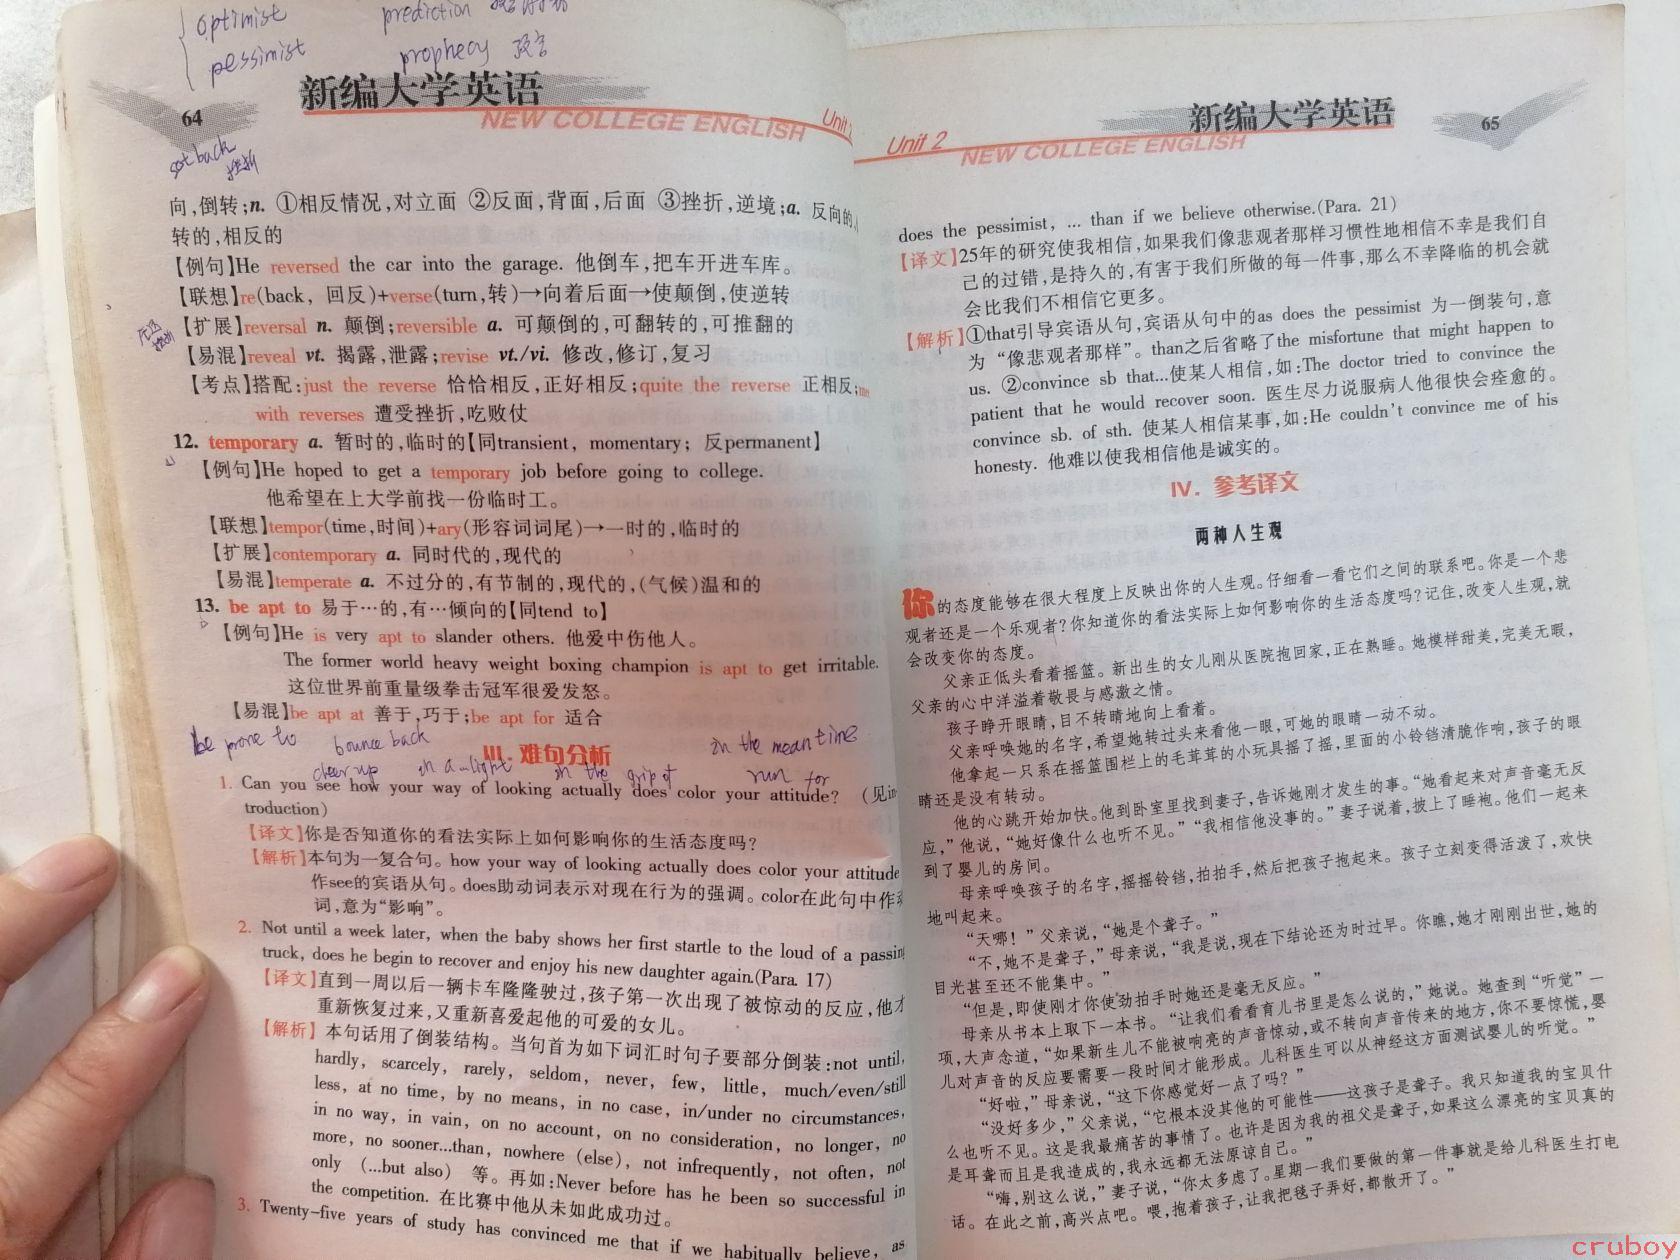 optimist prediction
pessimist prophecy 预言
64 新编大学英语
NEW COLLEGE ENGLISH Unit
set back
挫折
向,倒转;n. ①相反情况,对立面 ②反面,背面,后面 ③挫折,逆境;a. 反向的,
转的,相反的
【例句】He reversed the car into the garage. 他倒车,把车开进车库。
【联想】re(back, 回反)+verse(turn,转)→向着后面→使颠倒,使逆转
【扩展】reversal n. 颠倒;reversible a. 可颠倒的,可翻转的,可推翻的
【易混】reveal vt. 揭露,泄露;revise vt./vi. 修改,修订,复习
【考点】搭配:just the reverse 恰恰相反,正好相反;quite the reverse 正相反;
with reverses 遭受挫折,吃败仗
12. temporary a. 暂时的,临时的【同transient, momentary; 反permanent】
【例句】He hoped to get a temporary job before going to college.
他希望在上大学前找一份临时工。
【联想】tempor(time,时间)+ary(形容词词尾)→一时的,临时的
【扩展】contemporary a. 同时代的,现代的
【易混】temperate a. 不过分的,有节制的,现代的,(气候)温和的
13. be apt to 易于…的,有…倾向的【同tend to】
【例句】He is very apt to slander others. 他爱中伤他人。
The former world heavy weight boxing champion is apt to get irritable.
这位世界前重量级拳击冠军很爱发怒。
【易混】be apt at 善于,巧于;be apt for 适合
be prone to bounce back in the meantime
III. 难句分析
cheer up in a light in the grip of run for
1. Can you see how your way of looking actually does color your attitude? (见in-
troduction)
【译文】你是否知道你的看法实际上如何影响你的生活态度吗?
【解析】本句为一复合句。how your way of looking actually does color your attitude
作see的宾语从句。does助动词表示对现在行为的强调。color在此句中作动
词,意为“影响”。
2. Not until a week later, when the baby shows her first startle to the loud of a passing
truck, does he begin to recover and enjoy his new daughter again.(Para. 17)
【译文】直到一周以后一辆卡车隆隆驶过,孩子第一次出现了被惊动的反应,他才
重新恢复过来,又重新喜爱起他的可爱的女儿。
【解析】本句话用了倒装结构。当句首为如下词汇时句子要部分倒装:not until,
hardly, scarcely, rarely, seldom, never, few, little, much/even/still
less, at no time, by no means, in no case, in/under no circumstances,
in no way, in vain, on no account, on no consideration, no longer, no
more, no sooner...than, nowhere (else), not infrequently, not often, not
only (...but also) 等。再如:Never before has he been so successful in
the competition. 在比赛中他从未如此成功过。
3. Twenty-five years of study has convinced me that if we habitually believe, as
新编大学英语 65
Unit 2 NEW COLLEGE ENGLISH
does the pessimist, ... than if we believe otherwise.(Para. 21)
【译文】25年的研究使我相信,如果我们像悲观者那样习惯性地相信不幸是我们自
己的过错,是持久的,有害于我们所做的每一件事,那么不幸降临的机会就
会比我们不相信它更多。
【解析】①that引导宾语从句,宾语从句中的as does the pessimist 为一倒装句,意
为“像悲观者那样”。than之后省略了the misfortune that might happen to
us. ②convince sb that...使某人相信,如:The doctor tried to convince the
patient that he would recover soon. 医生尽力说服病人他很快会痊愈的。
convince sb. of sth. 使某人相信某事,如:He couldn't convince me of his
honesty. 他难以使我相信他是诚实的。
IV. 参考译文
两种人生观
你的态度能够在很大程度上反映出你的人生观。仔细看一看它们之间的联系吧。你是一个悲
观者还是一个乐观者?你知道你的看法实际上如何影响你的生活态度吗?记住,改变人生观,就
会改变你的态度。
父亲正低头看着摇篮。新出生的女儿刚从医院抱回家,正在熟睡。她模样甜美,完美无暇,
父亲的心中洋溢着敬畏与感激之情。
孩子睁开眼睛,目不转睛地向上看着。
父亲呼唤她的名字,希望她转过头来看他一眼,可她的眼睛一动不动。
他拿起一只系在摇篮围栏上的毛茸茸的小玩具摇了摇,里面的小铃铛清脆作响,孩子的眼
睛还是没有转动。
他的心跳开始加快。他到卧室里找到妻子,告诉她刚才发生的事。“她看起来对声音毫无反
应,”他说,“她好像什么也听不见。”“我相信他没事的。”妻子说着,披上了睡袍。他们一起来
到了婴儿的房间。
母亲呼唤孩子的名字,摇摇铃铛,拍拍手,然后把孩子抱起来。孩子立刻变得活泼了,欢快
地叫起来。
“天哪!”父亲说,“她是个聋子。”
“不,她不是聋子,”母亲说,“我是说,现在下结论还为时过早。你瞧,她才刚刚出世,她的
目光甚至还不能集中。”
“但是,即使刚才你使劲拍手时她还是毫无反应。”
母亲从书本上取下一本书。“让我们看看育儿书里是怎么说的,”她说。她查到“听觉”一
项,大声念道,“如果新生儿不能被响亮的声音惊动,或不转向声音传来的地方,你不要惊慌,婴
儿对声音的反应要需要一段时间才能形成。儿科医生可以从神经这方面测试婴儿的听觉。”
“好啦,”母亲说,“这下你感觉好一点了吗?”
“没好多少,”父亲说,“它根本没其他的可能性——这孩子是聋子。我只知道我的宝贝什
么也听不见。这是我最痛苦的事情了。也许是因为我的祖父是聋子,如果这么漂亮的宝贝真的
是耳聋而且是我造成的,我永远都无法原谅自己。”
“嗨,别这么说,”妻子说,“你太多虑了。星期一我们要做的第一件事就是给儿科医生打电
话。在此之前,高兴点吧。喂,抱着孩子,让我把毯子弄好,都散开了。”
cruboy